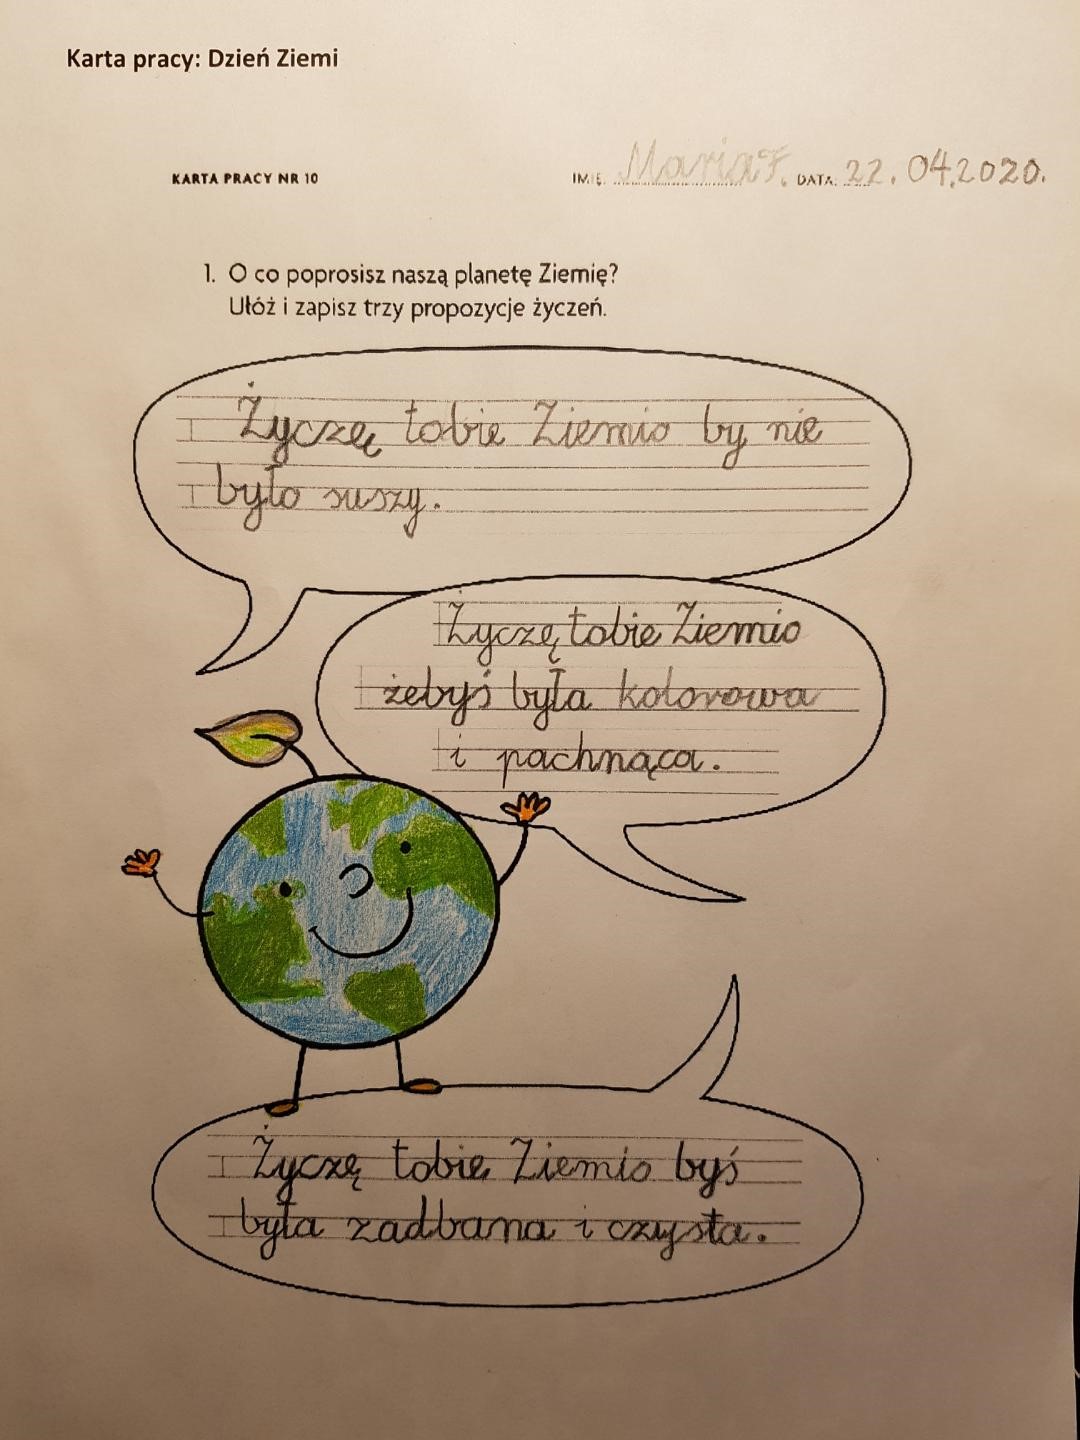 Karta pracy: Dzień Ziemi
KARTA PRACY NR 10 IMIĘ: Maria F. DATA: 22.04.2020.
1. O co poprosisz naszą planetę Ziemię?
Ułóż i zapisz trzy propozycje życzeń.
Życzę tobie Ziemio by nie
było suszy.
Życzę tobie Ziemio
żebyś była kolorowa
i pachnąca.
Życzę tobie Ziemio byś
była zadbana i czysta.